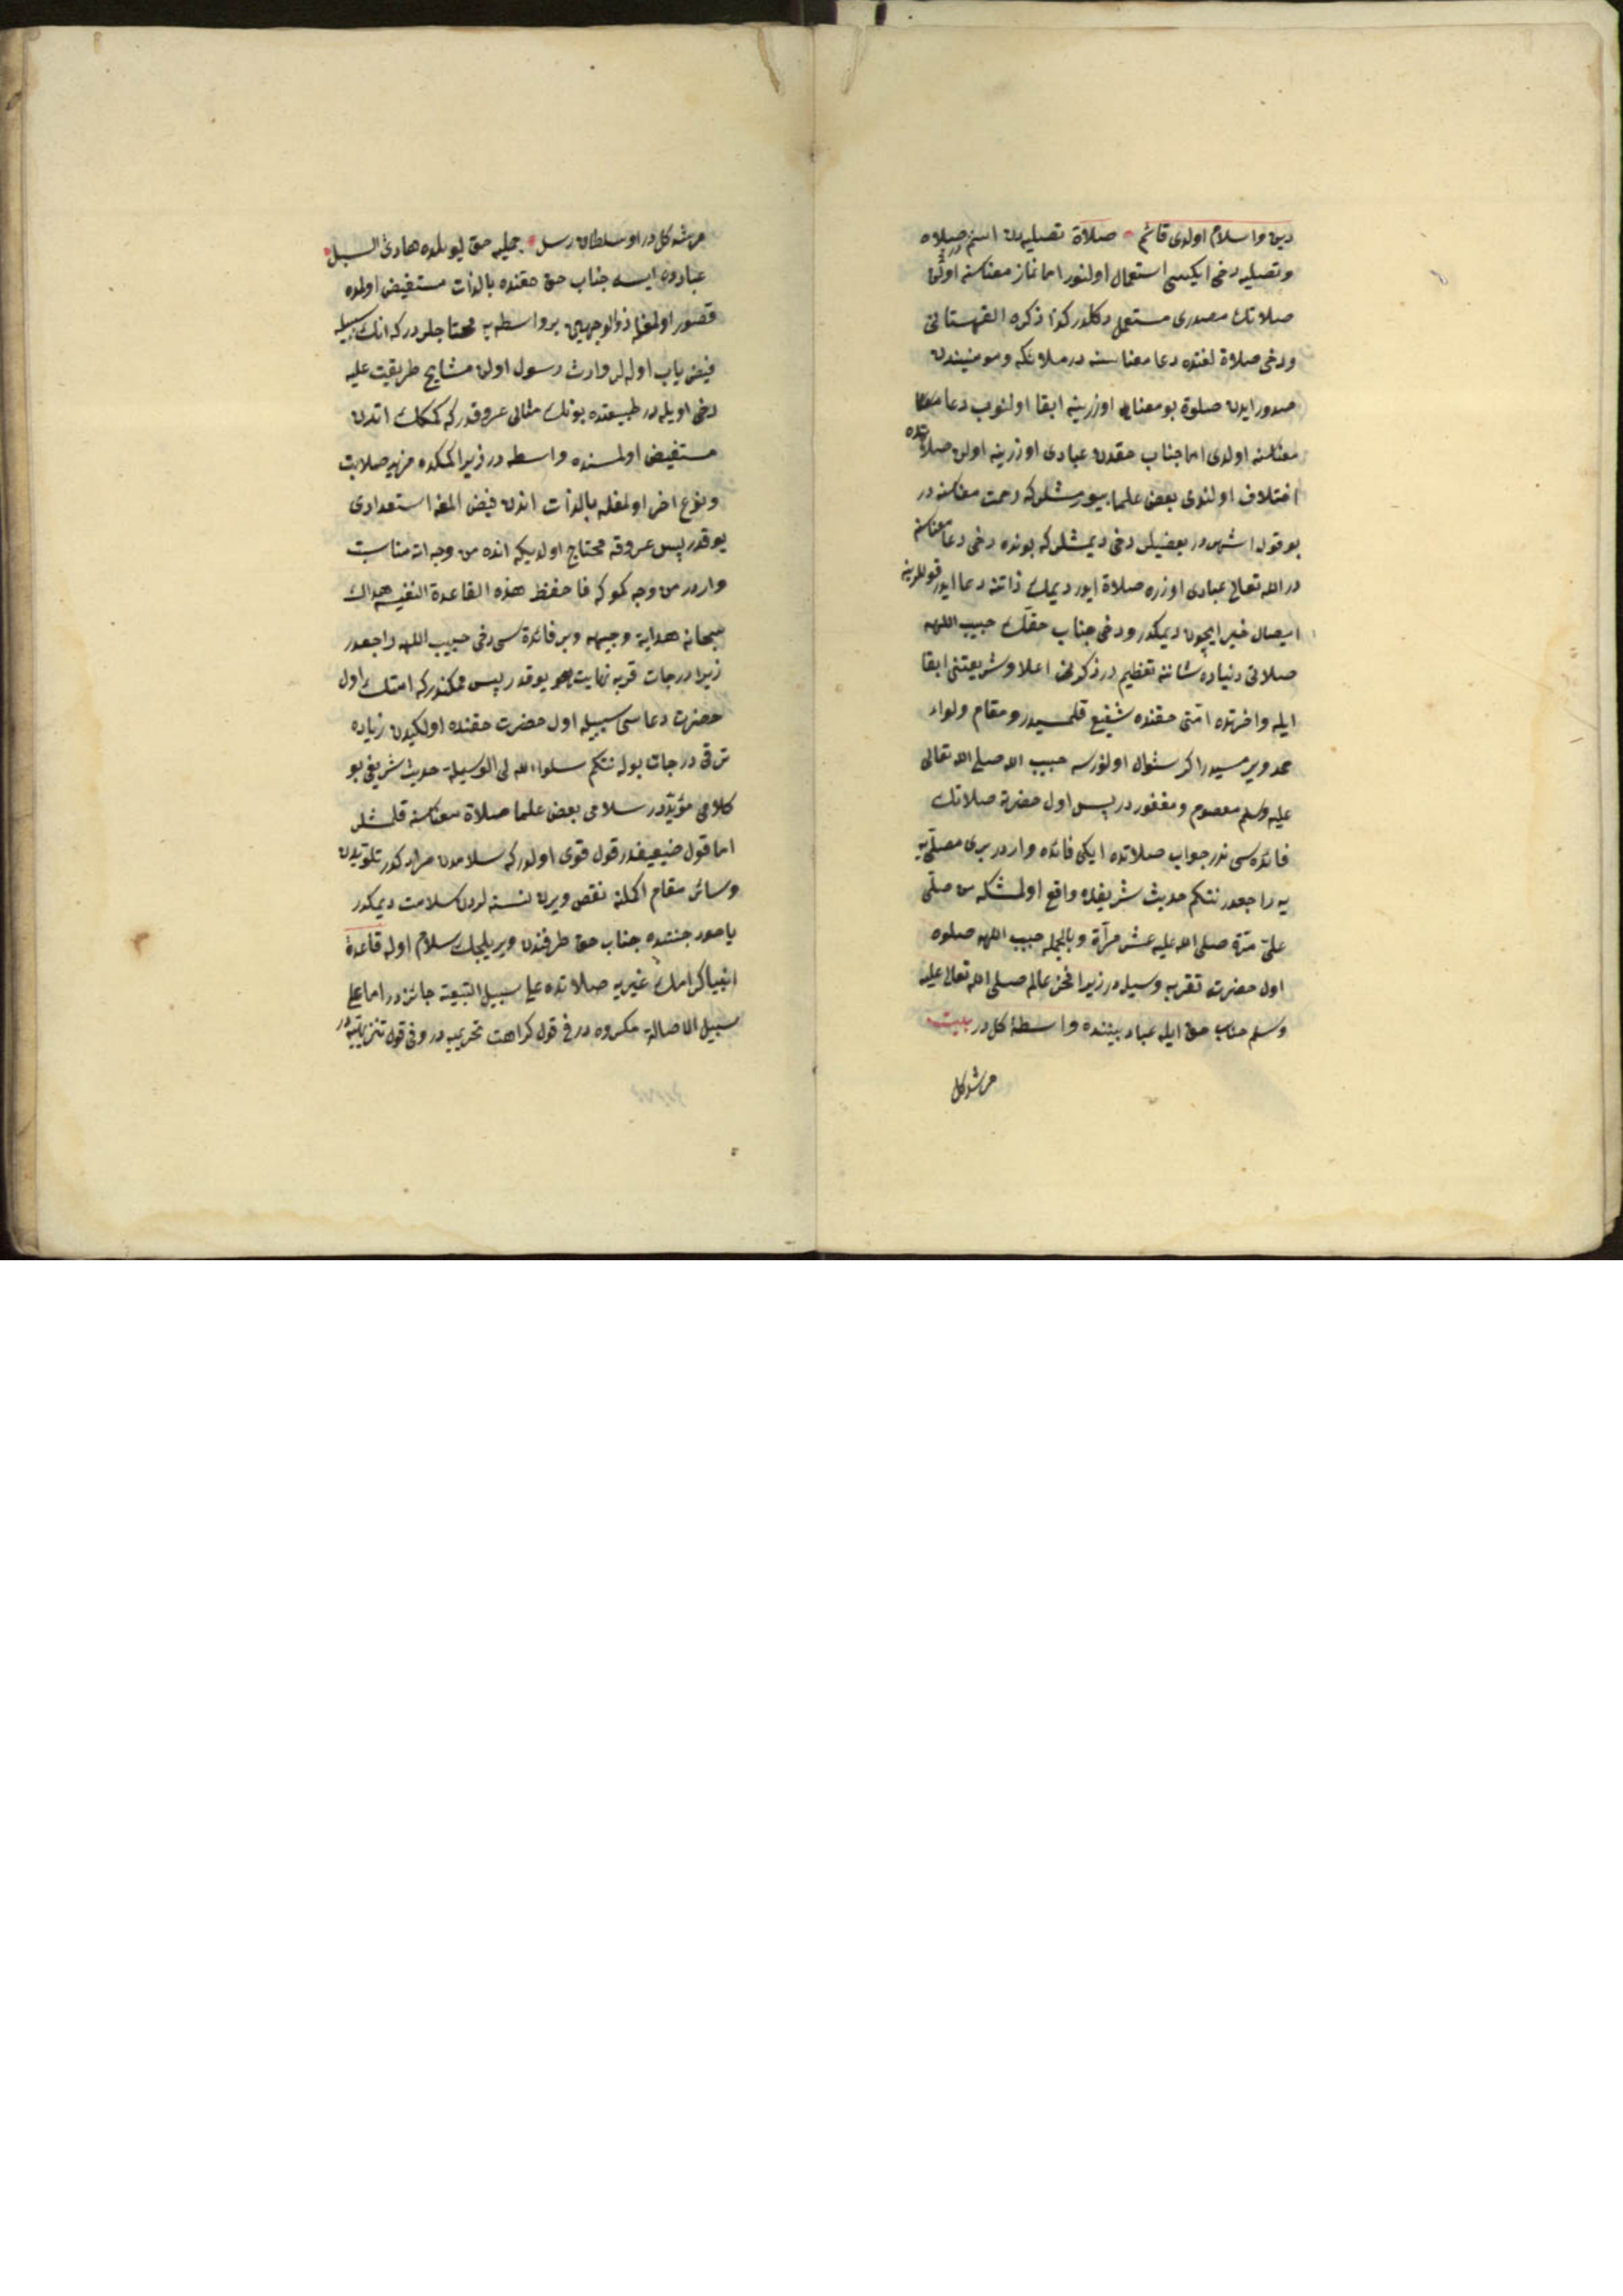 دین واسلام اولدی قائم صلاة تصلیه‌دن اسم در صلاه
وتصلیه دخی ایکیسی استعمال اولنور اما نماز معناسنه اولن
صلاتك مصدری مستعمل دکلدر کذا ذکره القهستانی
ودخی صلاة لغتده دعا معناسنه در ملائکه ومومنیندن
صدور ایدن صلوة بو معنا اوزرینه ابقا اولنوب دعا
معناسنه اولدی اما جناب حقدن عبادی اوزرینه اولن صلاتده
اختلاف اولندی بعض علما بیورمشلرکه رحمت معناسنه در
بو قول اشهر در بعضیلر دخی دیمشلرکه بونده دخی دعا معناسنه
در الله تعالی عبادی اوزره صلاة ایدر دیمك ذاتنه دعا ایدر قوللرینه
ایصال خیر ایچون دیمکدر ودخی جناب حقك حبیب اللهه
صلاتی دنیاده شاننه تعظیم در ذکرنی اعلا وشریعتنی ابقا
ایله واخرتده امتی حقنده شفیع قلمسیدر ومقام ولواء
حمد ویرمسیدر اکر سئوال اولنورسه حبیب الله صلی الله تعالی
علیه وسلم معصوم ومغفور در پس اول حضرته صلاتك
فائده سی ندر جواب صلاتده ایکی فائده واردر بری مصلی
یه راجعدر نتکم حدیث شریفده واقع اولمشکه من صلی
علی مرة صلی الله علیه عشر مرآة وبالجمله حبیب اللهه صلوه
اول حضرته تقربه وسیله در زیرا فخر عالم صلی الله تعالی علیه
وسلم جناب حق ایله عباد بیننده واسطهٔ کل در بیت
مرشد کل
مرشد کل در او سلطان رسل جمله‌یه حق یولده هادئ السبل
عباد وه ایسه جناب حق حقنده بالذات مستفیض اولمده
قصور اولمغله ذو الوجهین بر واسطه یه محتاجلر درکه انك سببیله
فیض یاب اوله لر وارث رسول اولن مشایخ طریقت علیه
دخی اویله در طبیعتده بونك مثالی عروقدرکه کمکك اتدن
مستفیض اولمسنده واسطه در زیرا کمکده مزید صلابت
ونوع اخر اولمغله بالذات اتدن فیض المغه استعدادی
یوقدر پس عروقه محتاج اولدیکه انده من وجه اته مناسبت
واردر من وجه کموکه فاحفظ هذه القاعدة النفیسه هداك
سبحانه هدایة وجیهه وبر فائدة سی دخی حبیب اللهه راجعدر
زیرا درجات قربه نهایت یوقدر پس ممکندرکه امتك اول
حضرته دعاسی سببیله اول حضرت حقنده اولکیدن زیاده
ترقی درجات بوله نتکم سلوا الله لی الوسیلة حدیث شریفی بو
کلامی مؤیددر سلامی بعض علما صلاة معناسنه قلمشلر
اما قول ضعیفدر قول قوی اولدرکه سلامدن مراد کدر تلوثیدن
وسائر مقام اکمله نقص ویرن نسنه لردن سلامت دیمکدر
یاخود جنتده جناب حق طرفندن ویریلجك سلام اوله قاعدة
انبیا کرامك غیریه صلاتده علی سبیل التبعیه جائزدر اما علی
سبیل الاصاله مکروه در فی قول کراهت تحریمیه در وفی قول تنزیهیه در